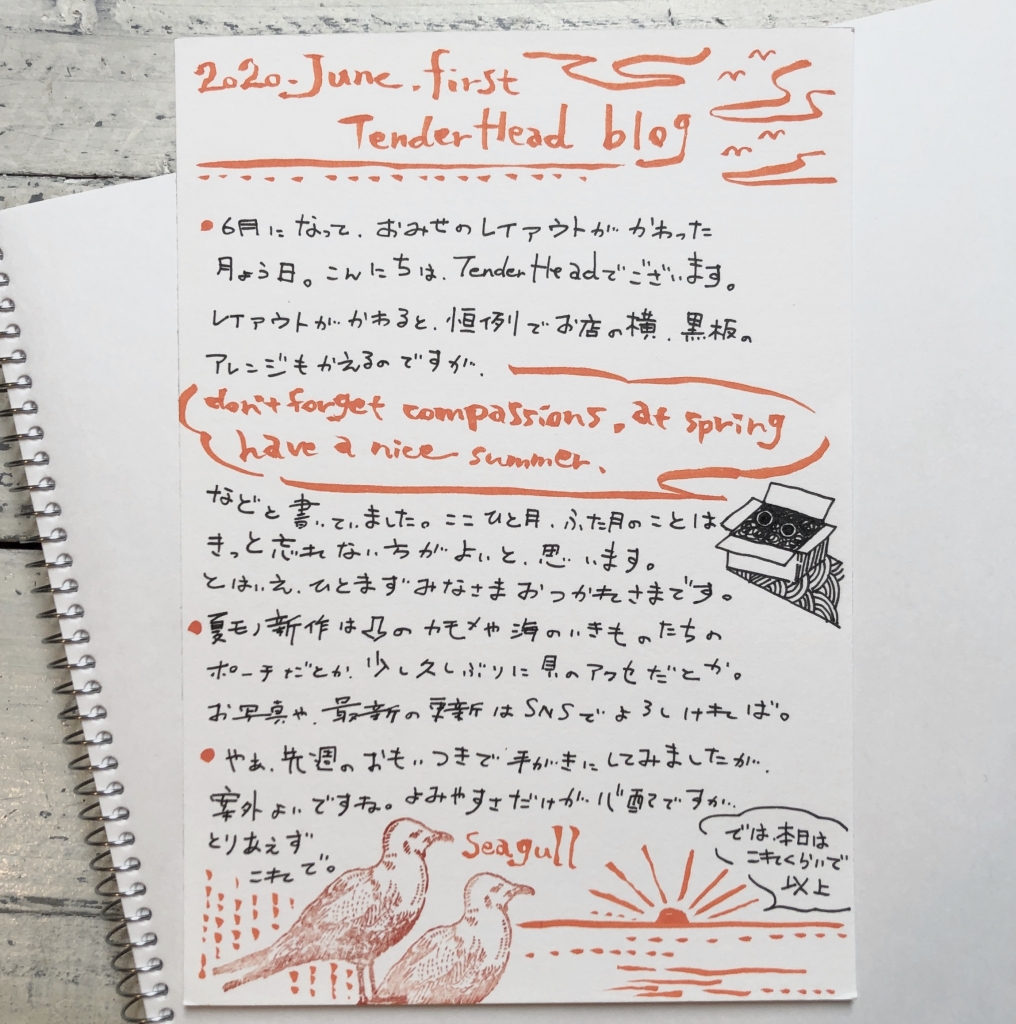 2020.June.first
TenderHead blog
●6月になって、おみせのレイアウトがかわった
月よう日。こんにちは、TenderHeadでございます。
レイアウトがかわると、恒例でお店の横、黒板の
アレンジもかえるのですが、
don't forget compassions, at spring
have a nice summer.
などと書いていました。ここひと月、ふた月のことは
きっと忘れない方がよいと、思います。
とはいえ、ひとまずみなさまおつかれさまです。
●夏モノ新作は⇩のカモメや海のいきものたちの
ポーチだとか、少し久しぶりに貝のアクセだとか。
お写真や、最新の更新はSNSでよろしければ。
●やぁ、先週のおもいつきで手がきにしてみましたが、
案外よいですね。よみやすさだけが心配ですが、
とりあえず
これで。
seagull
では、本日は
これくらいで
以上